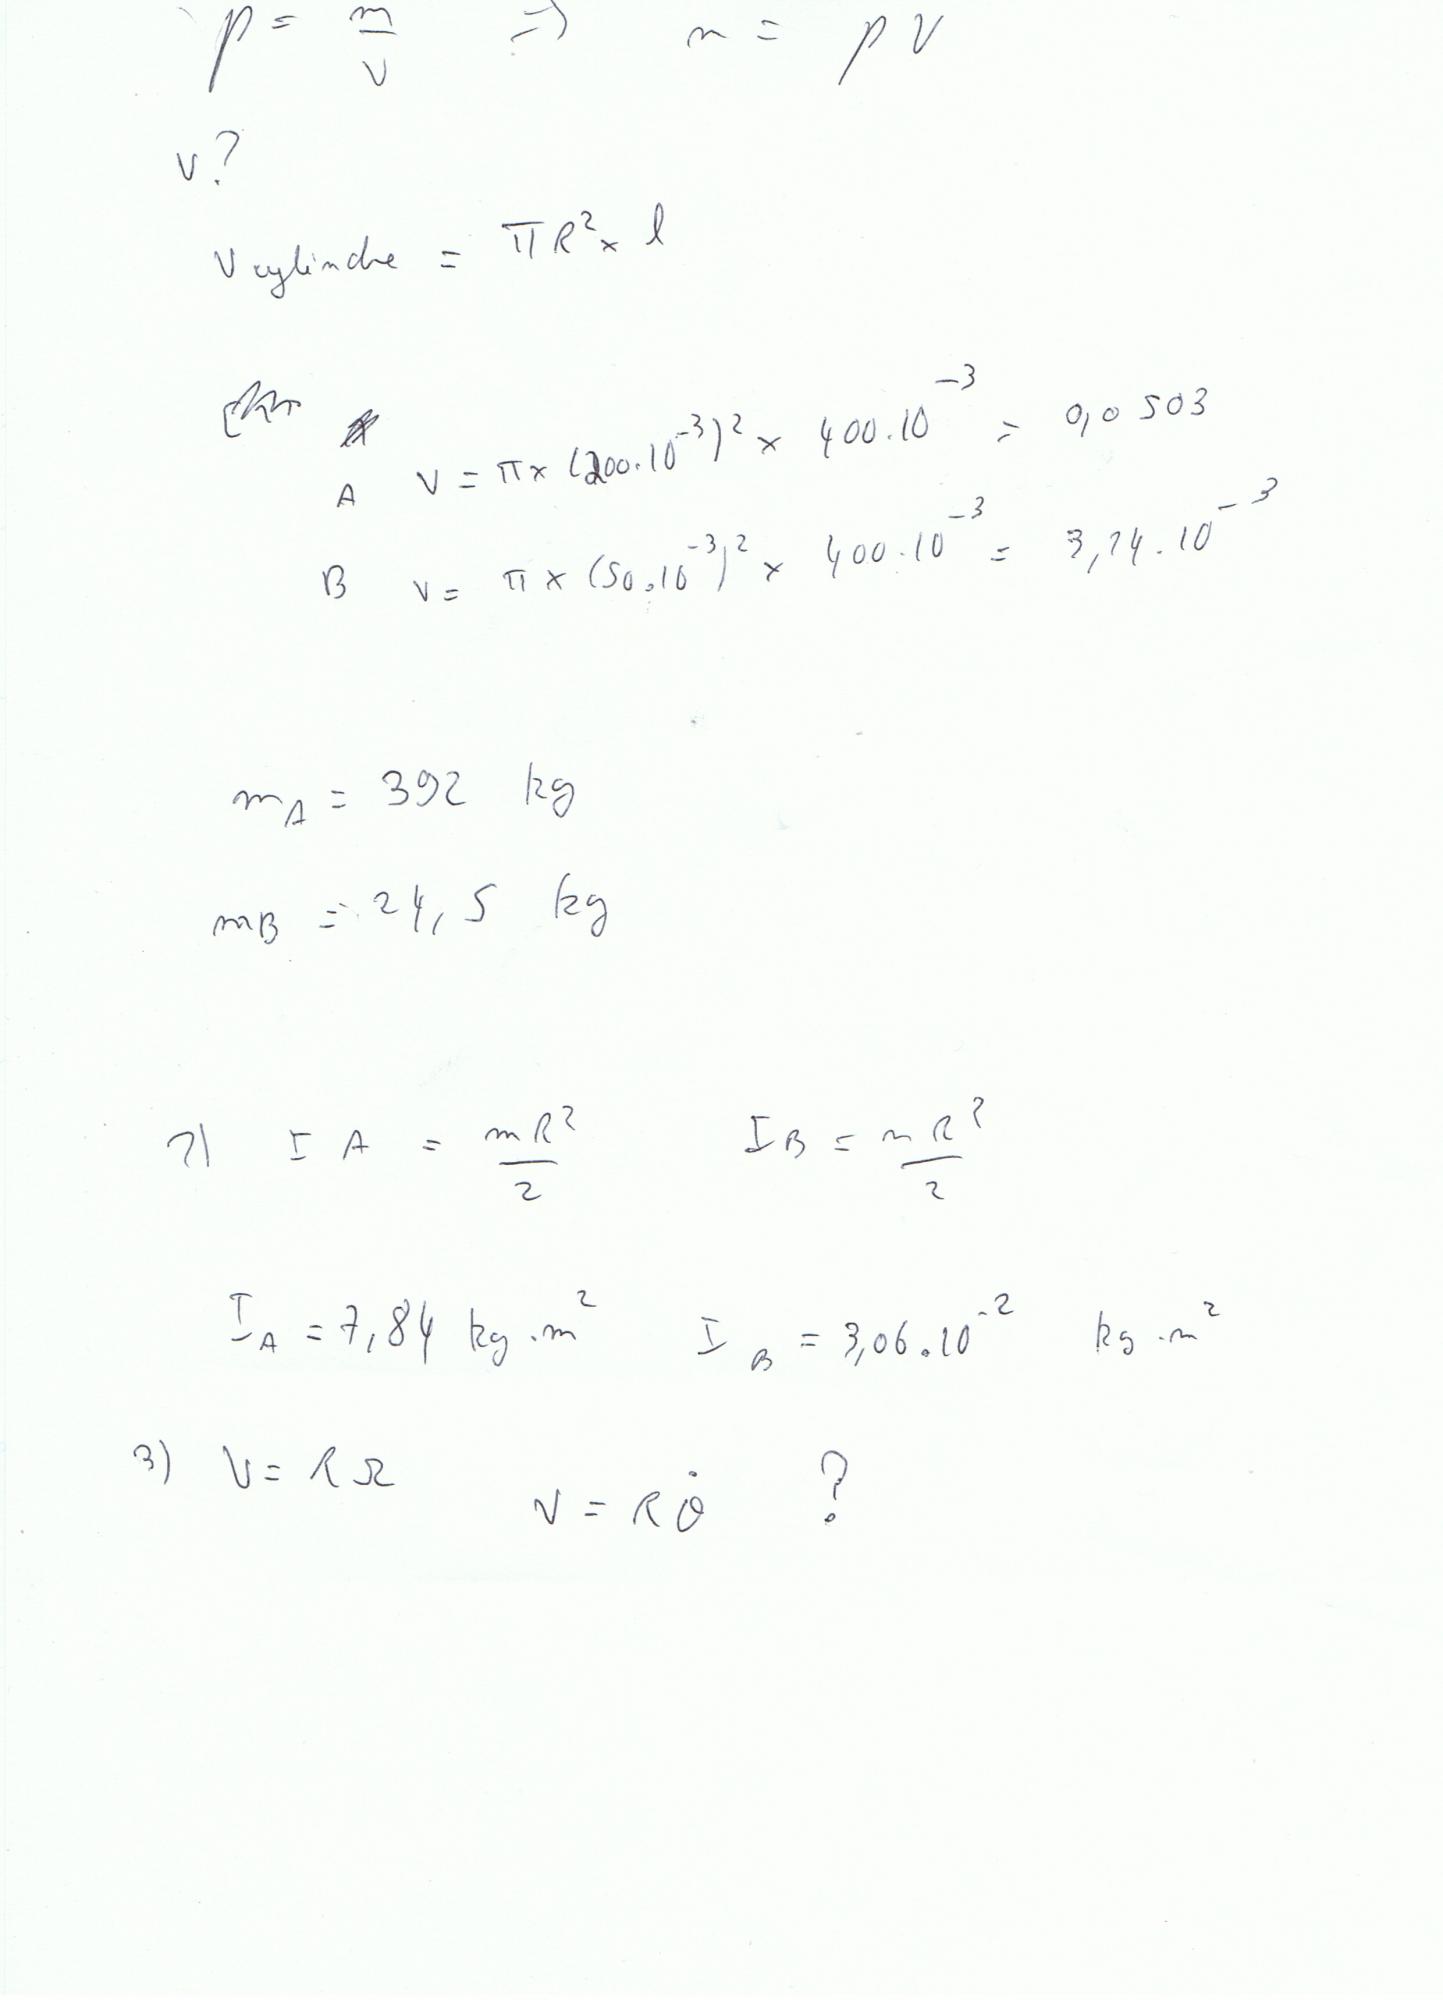 ρ = m/V => m = ρV
V?
V cylindre = πR² × l
A V = π × (200.10⁻³)² × 400.10⁻³ = 0,0503
B V = π × (50.10⁻³)² × 400.10⁻³ = 3,14.10⁻³
mA = 392 kg
mB = 24,5 kg
2) I A = mR²/2 IB = mR²/2
IA = 7,84 kg.m² IB = 3,06.10⁻² kg.m²
3) V = RΩ V = Rθ̇ ?